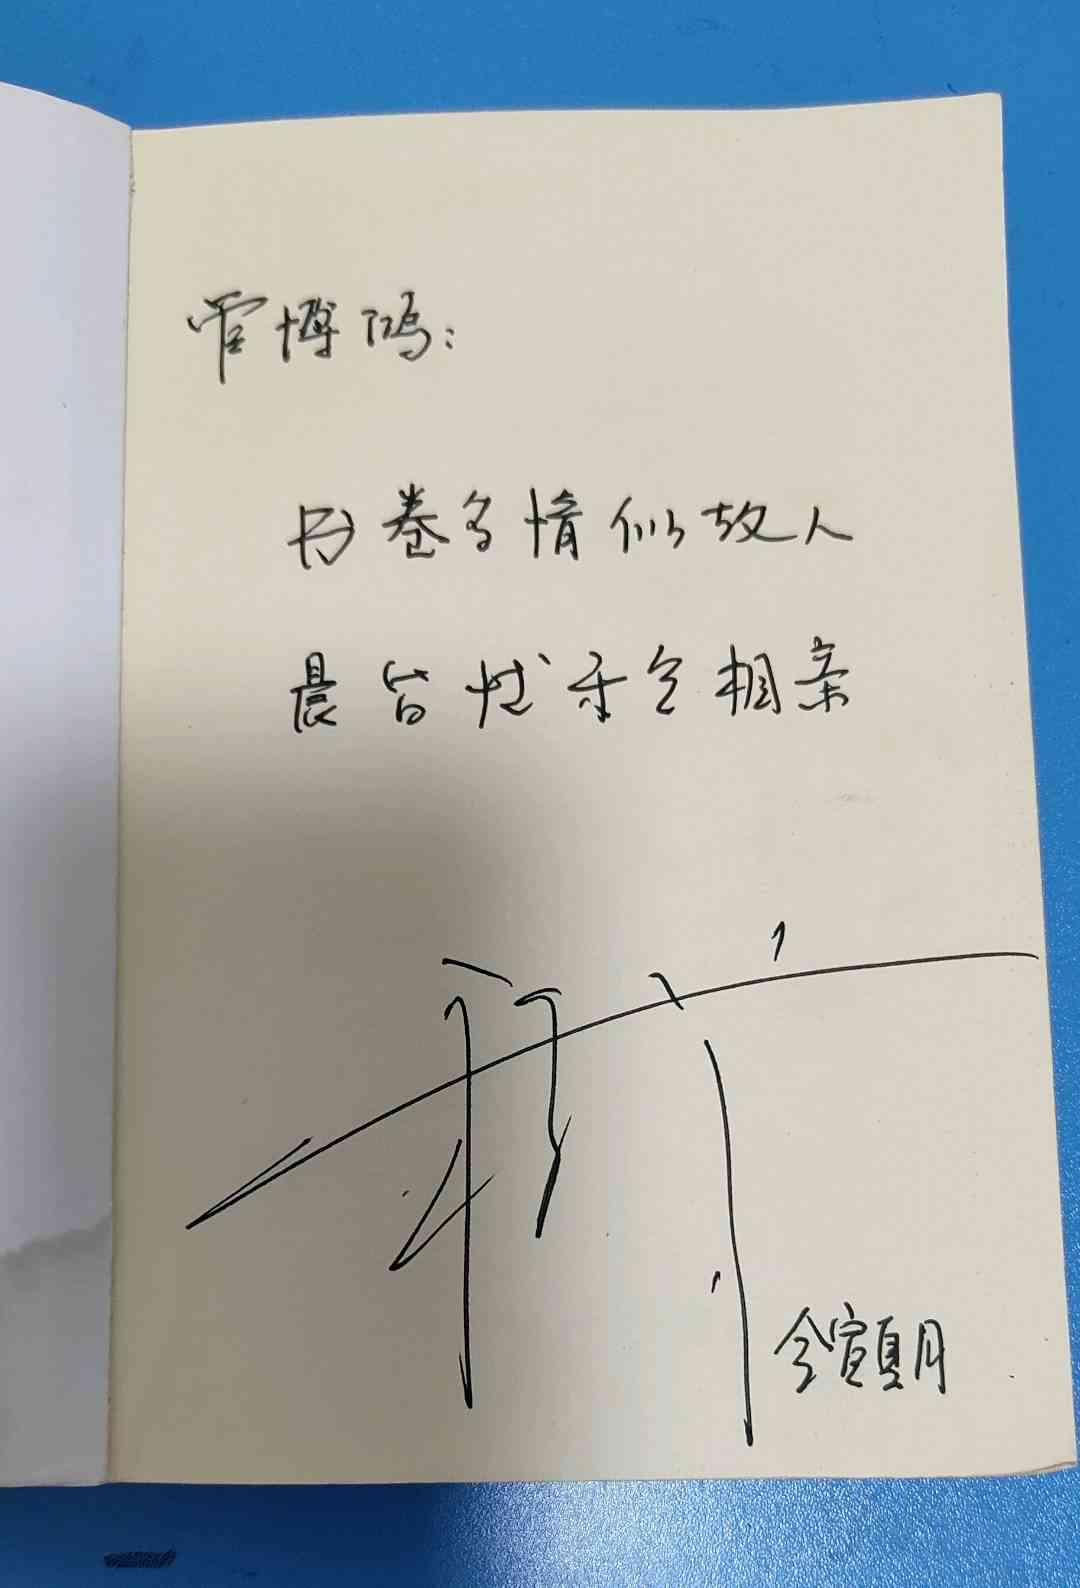 管博鸿：
书卷多情似故人
晨昏忧乐每相亲
令宣夏月